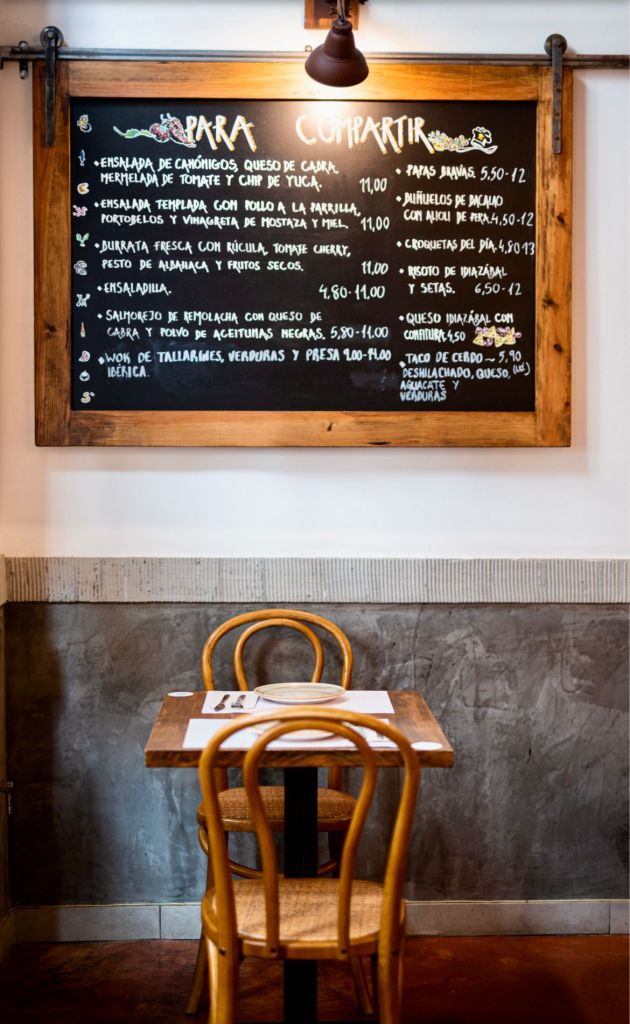 PARA COMPARTIR
• ENSALADA DE CANÓNIGOS, QUESO DE CABRA.
MERMELADA DE TOMATE Y CHIP DE YUCA. 11,00
• ENSALADA TEMPLADA CON POLLO A LA PARRILLA,
PORTOBELOS Y VINAGRETA DE MOSTAZA Y MIEL. 11,00
• BURRATA FRESCA CON RÚCULA, TOMATE CHERRY,
PESTO DE ALBAHACA Y FRUTOS SECOS. 11,00
• ENSALADILLA. 4,80-11,00
• SALMOREJO DE REMOLACHA CON QUESO DE
CABRA Y POLVO DE ACEITUNAS NEGRAS. 5,80-11,00
• WOK DE TALLARINES, VERDURAS Y PRESA 9,00-14,00
IBÉRICA.
• PAPAS BRAVAS. 5,50-12
• BUÑUELOS DE BACALAO
CON ALIOLI DE PERA. 4,50-12
• CROQUETAS DEL DÍA. 4,80 13
• RISOTO DE IDIAZÁBAL
Y SETAS. 6,50-12
• QUESO IDIAZÁBAL CON
CONFITURA. 4,50
• TACO DE CERDO ~ 5,90
DESHILACHADO, QUESO, (ud.)
AGUACATE Y
VERDURAS